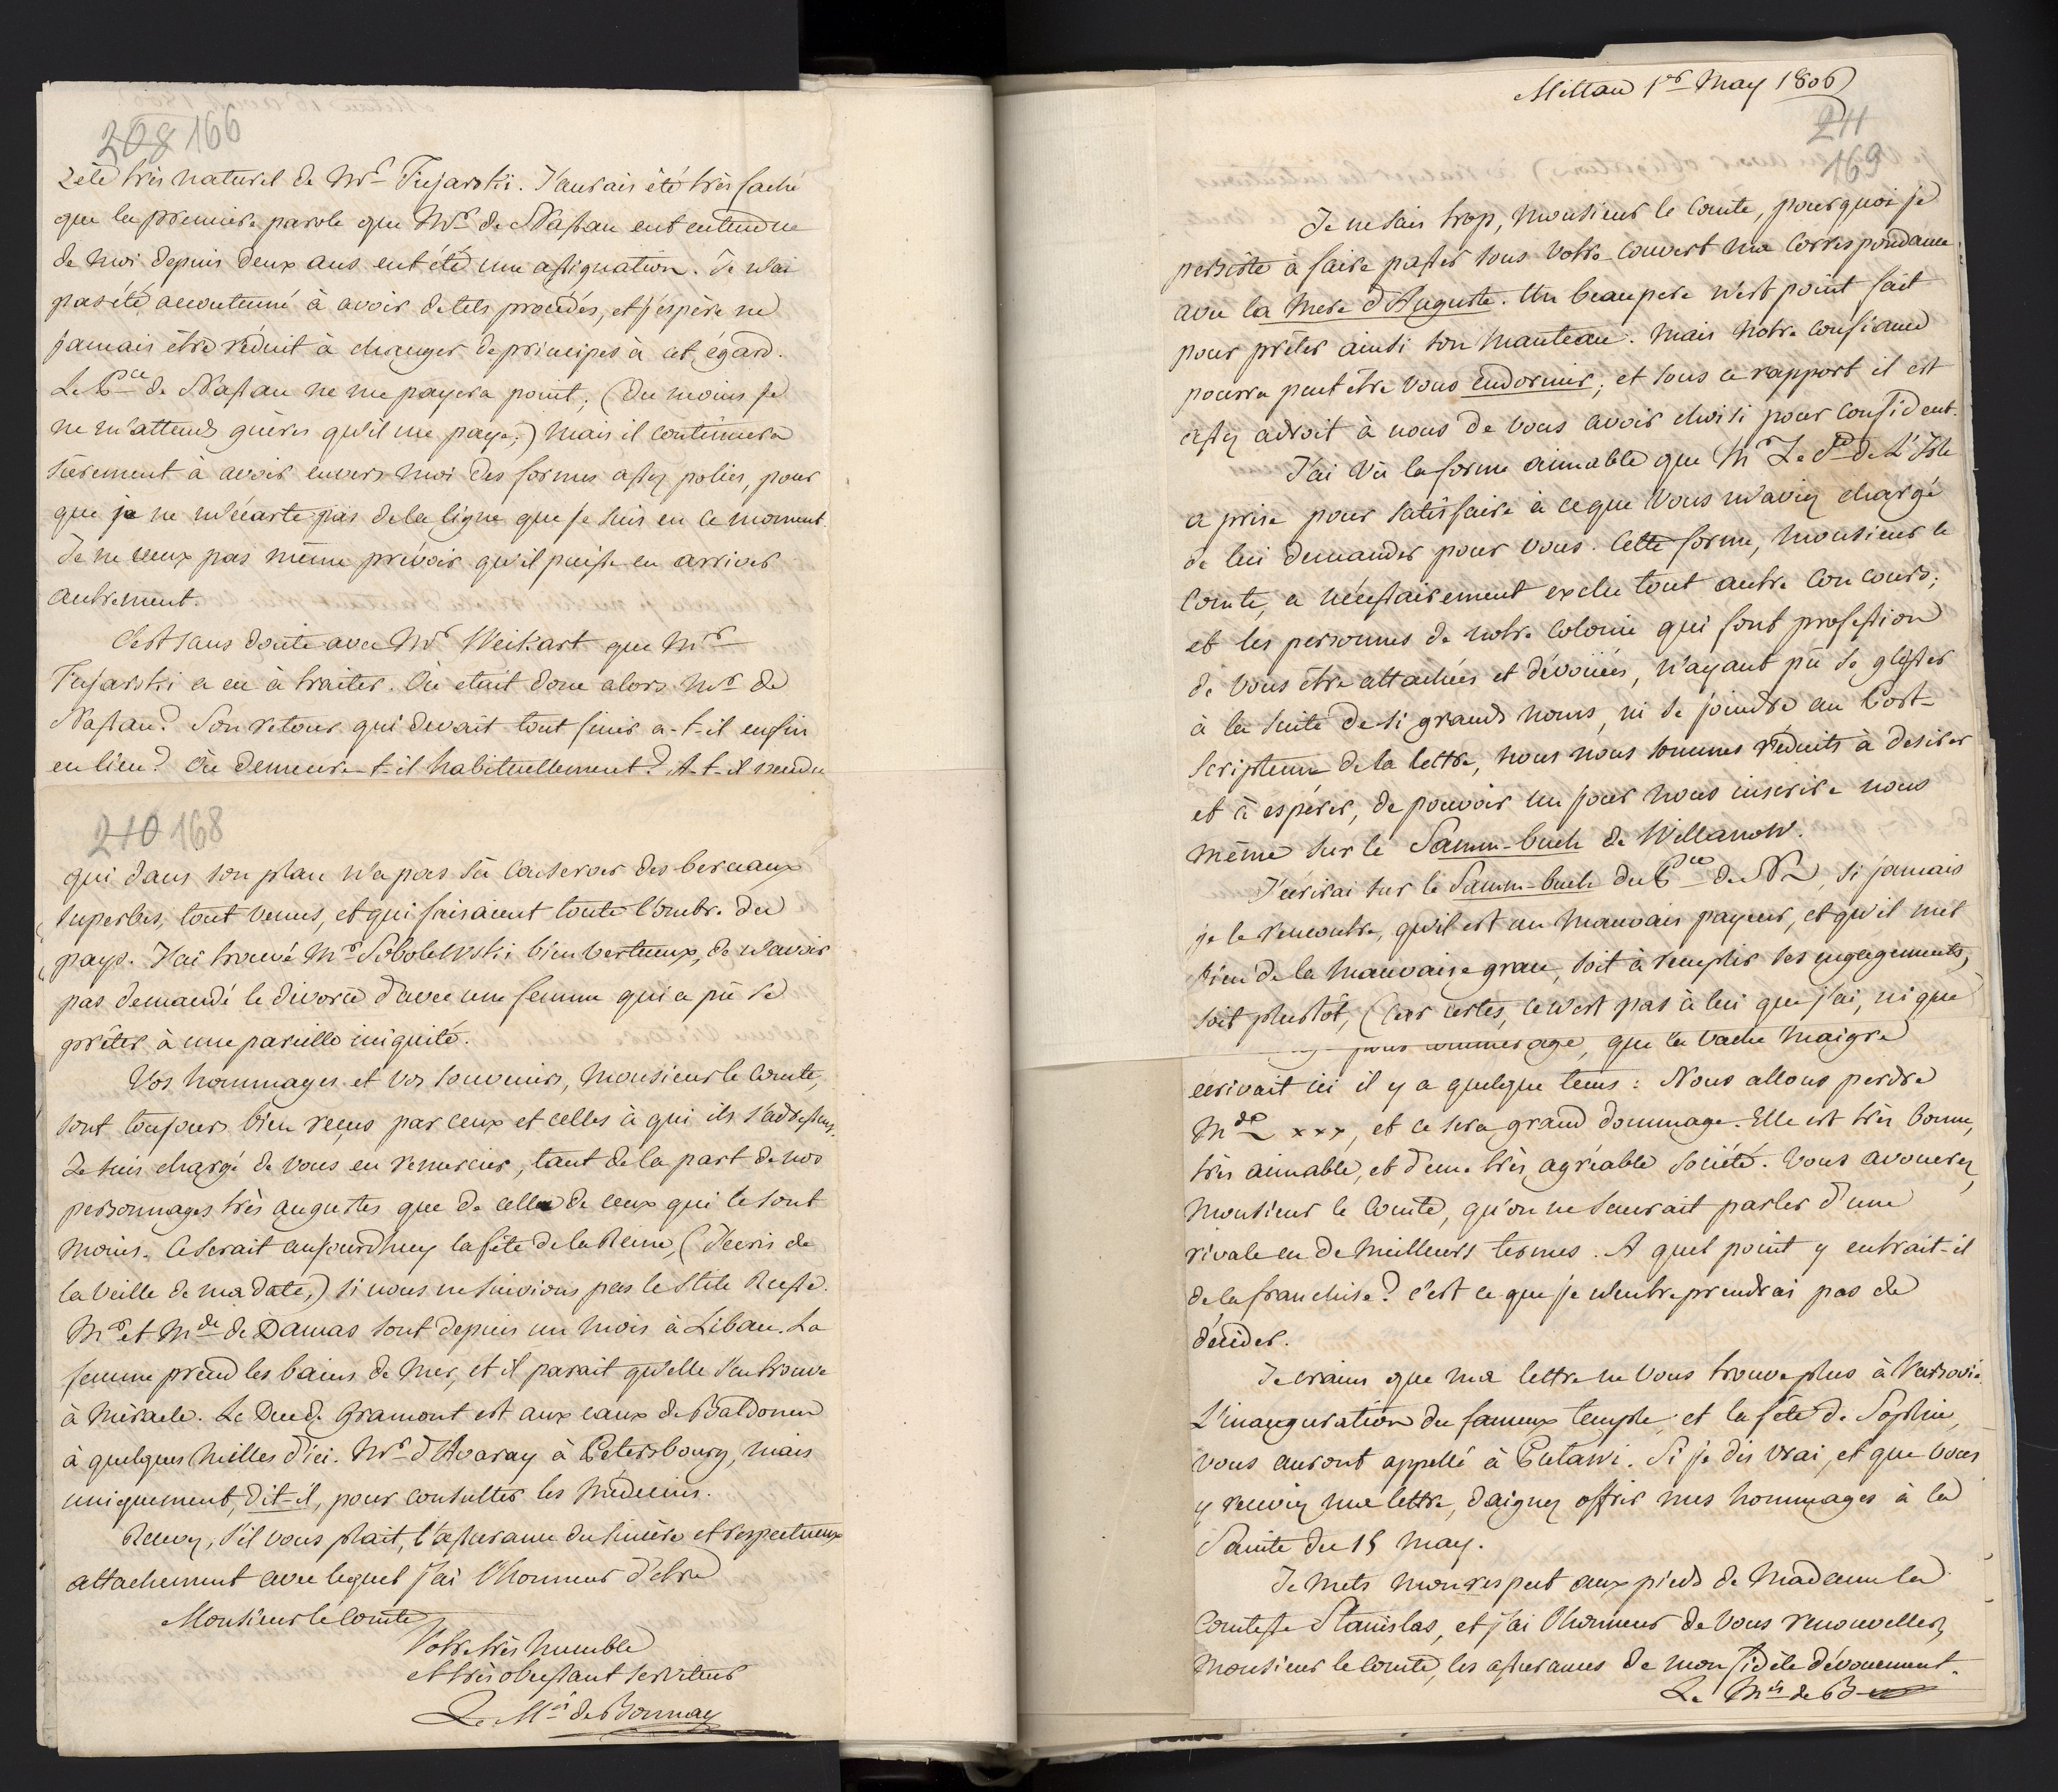 208 166
zèle très naturel de Mr Fujarski. J'aurais été très faché
que la première parole que Mr de Nassau eut entendue
de moi depuis deux ans eut été une assignation. Je n'ai
pas été accoutumé à avoir de tels procédés, et j'espère ne
jamais être réduit à changer de principes à cet égard.
Le Pce de Nassau ne me payera point; (du moins je
ne m'attends guères qu'il me paye;) mais il continuera
surement à avoir envers moi des formes assez polies, pour
que je ne m'écarte pas de la ligne que je suis en ce moment.
Je ne veux pas même prévoir qu'il puisse en arriver
autrement.
C'est sans doute avec Mr Weikart que Mr
Fujarski a eu à traiter. Où etait donc alors Mr de
Nassau? Son retour qui devait tout finir a-t-il enfin
eu lieu? Où demeure-t-il habituellement? A-t-il vendu
210 168
qui dans son plan n'a pas sû conserver des berceaux
superbes, tout venus, et qui faisaient toute l'ombre du
pays. J'ai trouvé Mr Sobolewski bien vertueux, de n'avoir
pas demandé le divorce d'avec une femme qui a pû se
prêter à une pareille iniquité.
Vos hommages et vos souvenirs, Monsieur le Comte,
sont toujours bien reçus par ceux et celles à qui ils s'adressent.
Je suis chargé de vous en remercier, tant de la part de nos
personnages très augustes que de celle de ceux qui le sont
moins. Ce serait aujourdhuy la fête de la Reine, (J'ecris de
la veille de ma date,) si nous ne suivions pas le Stile Russe.
Mr et Mde de Damas sont depuis un mois à Libau. La
femme prend les bains de Mer, et il parait qu'elle s'en trouve
à miracle. Le Duc de Gramont est aux eaux de Baldonen
à quelques milles d'ici. Mr d'Avaray à Petersbourg, mais
uniquement, dit-il, pour consulter les Médecins.
Recevez, s'il vous plait, l'assurance du sincère et respectueux
attachement avec lequel j'ai l'honneur d'etre
Monsieur le Comte
Votre très humble
et très obeissant serviteur
Le Mis de Bonnay
Mittau 1er May 1806
211
169
Je ne sais trop, Monsieur le Comte, pourquoi je
persiste à faire passer sous votre couvert ma correspondance
avec la Mere d'Auguste. Un beaupere n'est point fait
pour prêter ainsi son manteau. Mais notre confiance
pourra peut être vous endormir; et sous ce rapport il est
assez adroit à nous de vous avoir choisi pour confident.
J'ai vû la forme aimable que Mr Le Cte de L'Isle
a prise pour satisfaire à ce que vous m'aviez chargé
de lui demander pour vous. Cette forme, Monsieur le
Comte, a nécessairement exclu tout autre concours;
et les personnes de notre colonie qui font profession
de vous être attachées et dévoüées, n'ayant pû se glisser
à la suite de si grands noms, ni se joindre au Post-
Scriptum de la lettre, nous nous sommes réduits à desirer
et à espérer, de pouvoir un jour nous inscrire nous
même sur le Stamm-buch de Willanow.
J'écrirai sur le Stamm-buch du Pce de N, si jamais
je le rencontre, qu'il est un mauvais payeur, et qu'il met
bien de la mauvaise grace, soit à remplir ses engagements,
soit plustôt, (car certes, ce n'est pas à lui que j'ai, ni que
pour commérage, que la vache maigre
ecrivait ici il y a quelque tems: Nous allons perdre
Mde xxx, et ce sera grand dommage. Elle est très bonne,
très aimable, et d'une très agréable société. Vous avouerez,
Monsieur le Comte, qu'on ne saurait parler d'une
rivale en de meilleurs termes. A quel point y entrait-il
de la franchise? c'est ce que je n'entreprendrai pas de
décider.
Je crains que ma lettre ne vous trouve plus à Varsovie.
L'inauguration du fameux temple, et la fête de Sophie,
vous auront appellé à Pulawi. Si je dis vrai, et que vous
y receviez ma lettre, daignez offrir mes hommages à la
Sainte du 15 May.
Je mets mon respect aux pieds de Madame la
Comtesse Stanislas, et j'ai l'honneur de vous renouveller,
Monsieur le Comte, les assurances de mon fidèle dévouement.
Le Mis de B